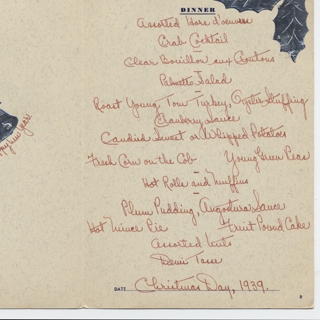 DINNER
Assorted Hors d'oeuvres
Crab Cocktail
Clear Bouillon aux Croutons
Palmetto Salad
Roast Young Tom Turkey, Oyster Stuffing
Cranberry Sauce
Candied Sweet or Whipped Potatoes
Fresh Corn on the Cob Young Green Peas
Hot Rolls and Muffins
Plum Pudding, Angostura Sauce
Hot Mince Pie Fruit Pound Cake
Assorted Nuts
Demi Tasse
DATE Christmas Day, 1939.
New Year!